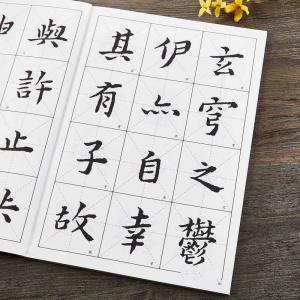 玄穹之鬱
伊自幸
其有子故
與許